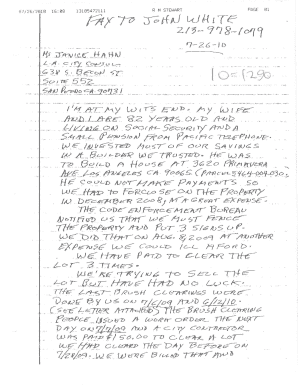 07/26/2010 16:08 13105472111 R M STEWART PAGE 01
FAX TO JOHN WHITE
213-978-1079
7-26-10
MS JANICE HAHN
L.A. CITY COUNCIL
638 S. BECON ST
SUITE 552
SAN PEDRO CA 90731
10=1290
I'M AT MY WITS END. MY WIFE
AND I ARE 82 YEARS OLD AND
LIVING ON SOCIAL SECURITY AND A
SMALL PENSION FROM PACIFIC TELEPHONE.
WE INVESTED MOST OF OUR SAVINGS
IN A BUILDER WE TRUSTED. HE WAS
TO BUILD A HOUSE AT 3620 PRIMAVERA
AVE. LOS ANGELES CA 90065 (PARCEL 5464-009-030).
HE COULD NOT MAKE PAYMENTS SO
WE HAD TO FORECLOSE ON THE PROPERTY
IN DECEMBER 2008, AT A GREAT EXPENSE.
THE CODE ENFORCEMENT BUREAU
NOTIFIED US THAT WE MUST FENCE
THE PROPERTY AND PUT 3 SIGNS UP.
WE DID THAT ON AUG 8, 2009 AT ANOTHER
EXPENSE WE COULD ILL AFORD.
WE HAVE PAID TO CLEAR THE
LOT 3 TIMES.
WE'RE TRYING TO SELL THE
LOT BUT HAVE HAD NO LUCK.
THE LAST BRUSH CLEARINGS WERE
DONE BY US ON 7/6/09 AND 6/12/10.
(SEE LETTER ATTACHED) THE BRUSH CLEARING
PEOPLE ISSUED A WORK ORDER THE NEXT
DAY ON 7/7/09 AND A CITY CONTRACTOR
WAS PAID $150.00 TO CLEAR A LOT
WE HAD CLOSED THE DAY BEFORE ON
7/28/09. WE WERE BILLED THAT AND